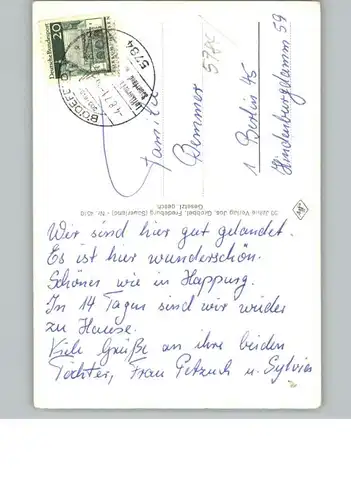 Deutsche Bundespost
20
BÖDEFELD
5784
-4.8.71
Luftkurort
Familie
Demmer
1 Berlin 45
Hindenburgdamm 59
30 Jahre Verlag Jos. Grobbel, Fredeburg (Sauerland) - Nr.
Gesetzl. gesch.
Wir sind hier gut gelandet.
Es ist hier wunderschön.
Schöner wie in Happurg.
In 14 Tagen sind wir wieder
zu Hause.
Viele Grüße an ihre beiden
Töchter, Frau Petzuch u. Sylvia